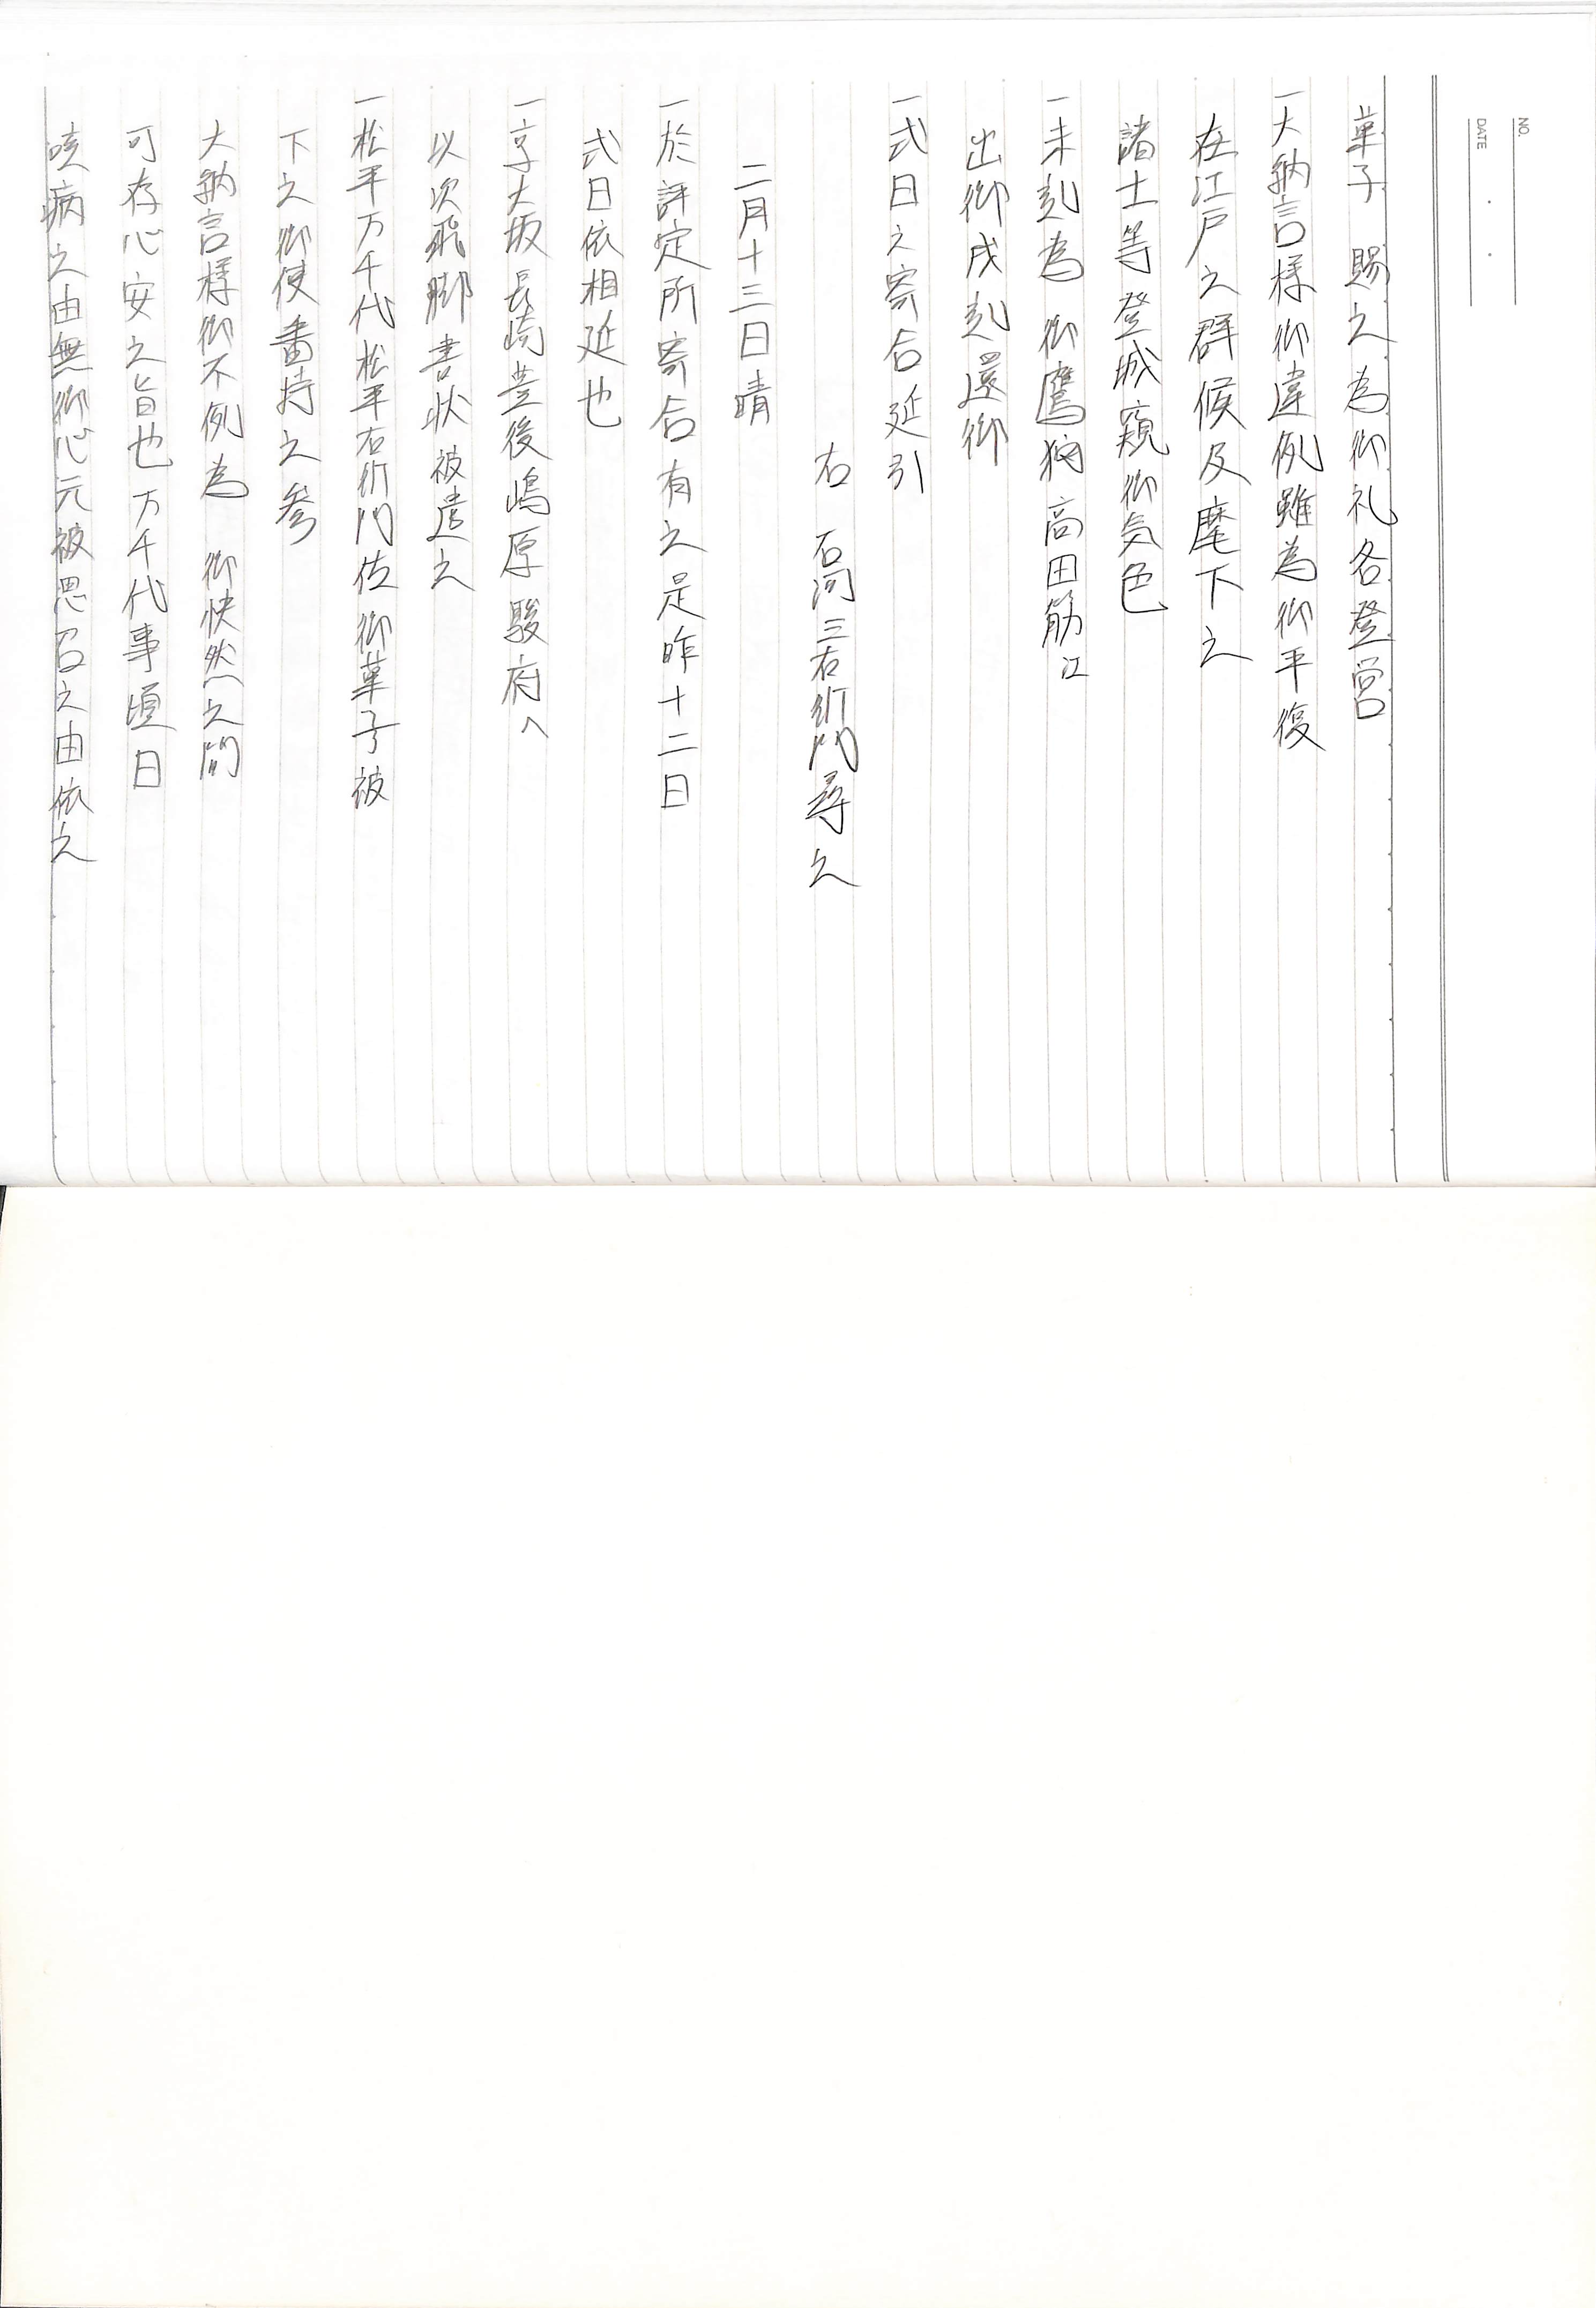 NO.
DATE
菓子 賜之為御礼各登営
一大納言様御違例雖為御平復
在江戸之群候及麾下之
諸士等登城窺御気色
一未刻為 御鷹狩高田筋江
出御戌刻還御
一式日之寄合延引
右 石河三右衛門尋之
二月十三日晴
一於評定所寄合有之是昨十二日
式日依相延也
一京大坂長崎豊後嶋原駿府へ
以次飛脚書状被遣之
一松平万千代松平右衛門佐御菓子被
下之御使番持之参
大納言様御不例為 御快然之間
可存心安之旨也万千代事頃日
咳病之由無御心元被思召之由依之